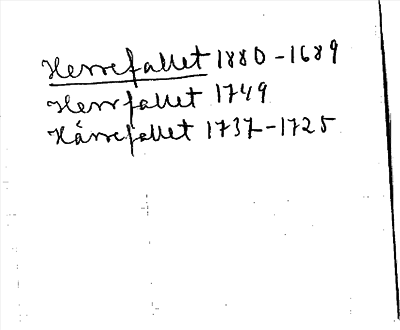 Herrefallet 1880-1689
Herrfallet 1749
Hárrefallet 1737-1725